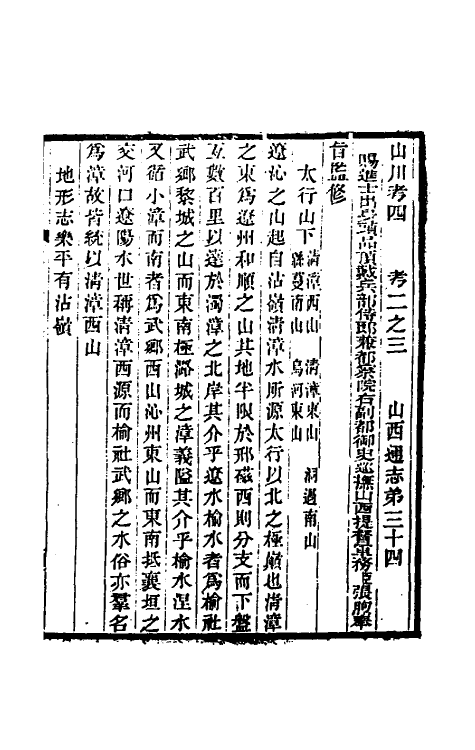 山川考四　考二之三　山西通志第三十四
賜進士出身頭品頂戴兵部侍郎兼都察院右副都御史巡撫山西提督軍務臣張煦奉
旨監修
太行山下　清漳西山　清漳東山　洞過南山
縣蔓南山　烏河東山
遼沁之山起自沾嶺清漳水所源太行以北之極巔也清漳
之東為遼州和順之山其地半隩於邢磁西則分支而下盤
亙數百里以達於濁漳之北岸其介乎遼水榆水者為榆社
武鄉黎城之山而東南極潞城之漳義隘其介乎榆水涅水
又循小漳而南者為武鄉西山沁州東山而東南抵襄垣之
交河口遼陽水世稱清漳西源而榆社武鄉之水俗亦羣名
為漳故皆統以清漳西山
地形志樂平有沾嶺